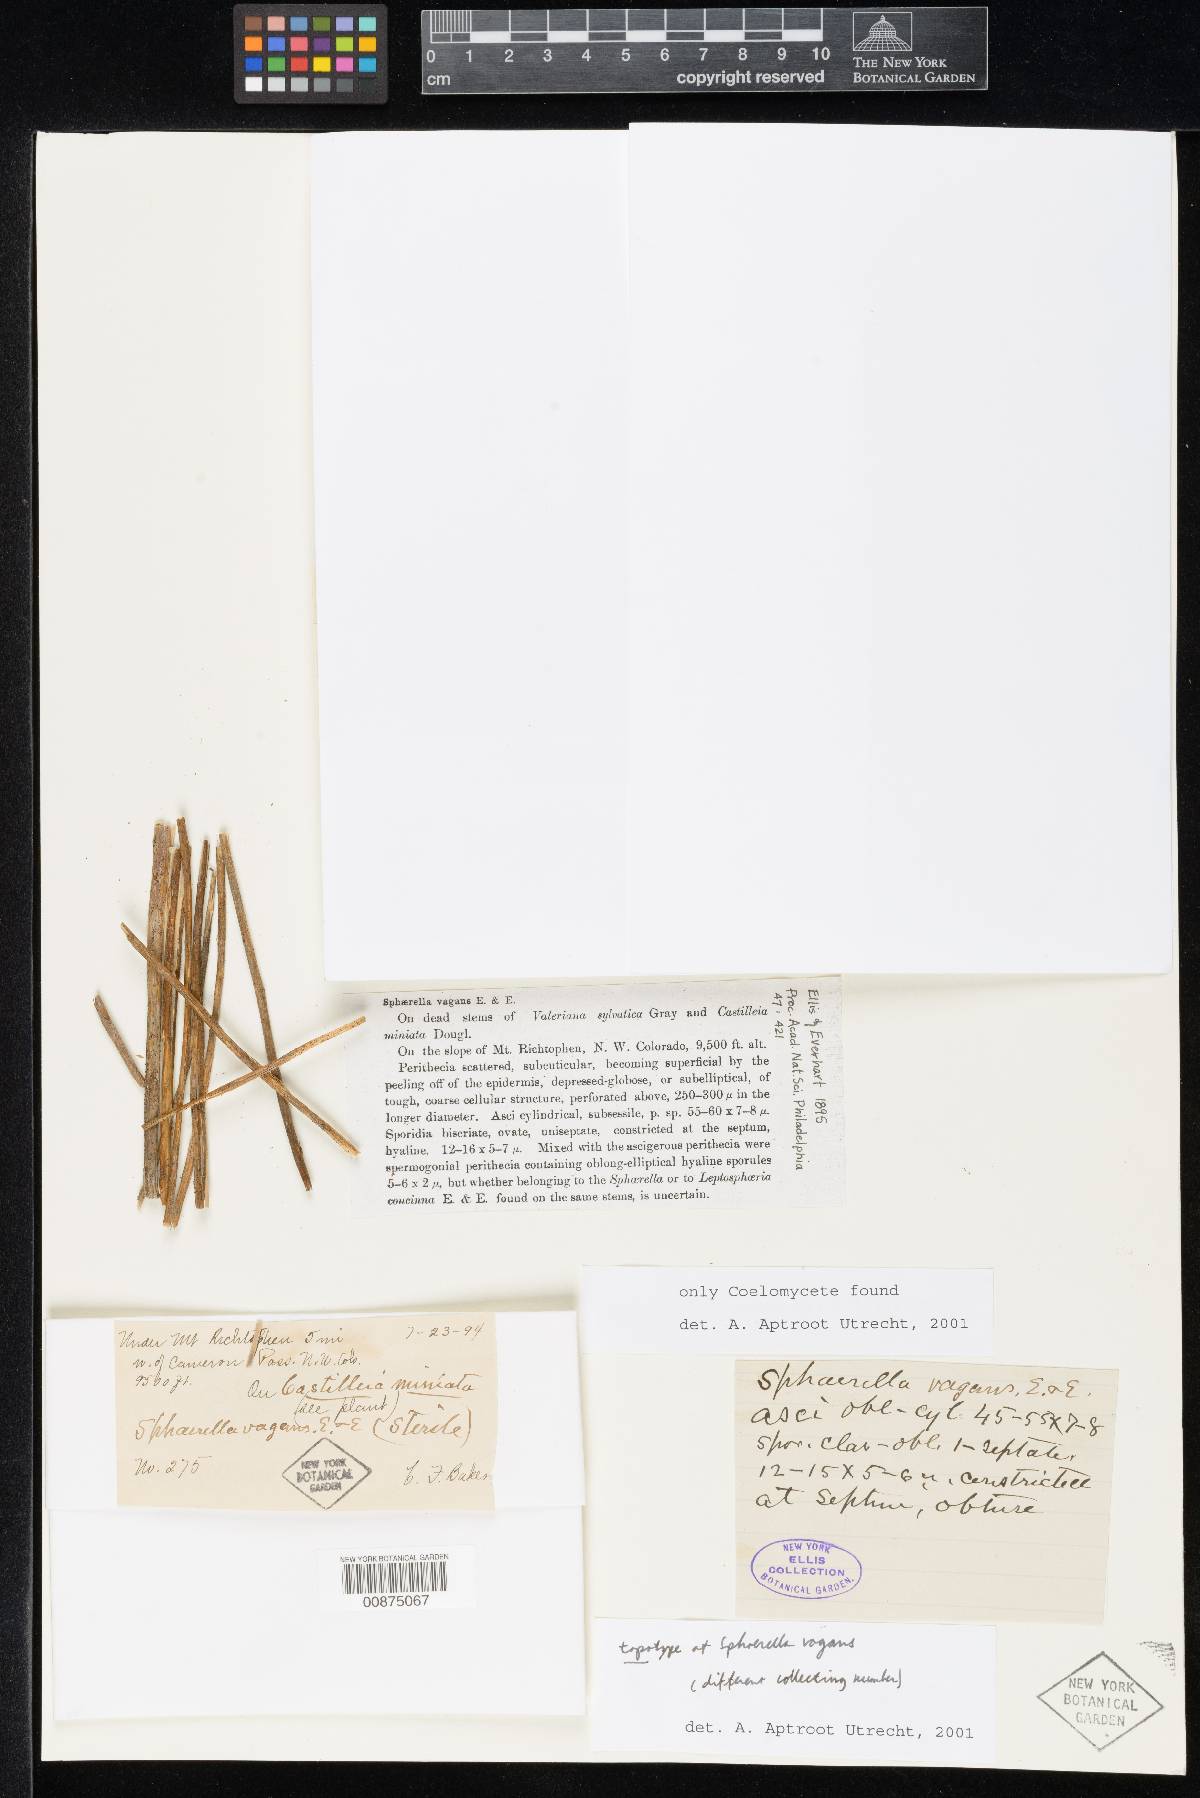 0 1 2 3 4 5 6 7 8 9 10
cm
copyright reserved
THE NEW YORK
BOTANICAL GARDEN
Sphærella vagans E. & E.
On dead stems of Valeriana sylvatica Gray and Castilleia
miniata Dougl.
On the slope of Mt. Richtophen, N. W. Colorado, 9,500 ft. alt.
Perithecia scattered, subcuticular, becoming superficial by the
peeling off of the epidermis, depressed-globose, or subelliptical, of
tough, coarse cellular structure, perforated above, 250–300 µ in the
longer diameter. Asci cylindrical, subsessile, p. sp. 55–60 x 7–8 µ.
Sporidia biseriate, ovate, uniseptate, constricted at the septum,
hyaline. 12–16 x 5–7 µ. Mixed with the ascigerous perithecia were
spermogonial perithecia containing oblong-elliptical hyaline sporules
5–6 x 2 µ, but whether belonging to the Sphærella or to Leptosphæria
concinna E. & E. found on the same stems, is uncertain.
Ellis & Everhart 1895
Proc. Acad. Nat. Sci. Philadelphia
47: 421
only Coelomycete found
det. A. Aptroot Utrecht, 2001
Under Mt Richtophen 5 mi 7-23-94
w. of Cameron Pass. N.W. Colo.
9500 ft. On Castilleia miniata
(see plant)
Sphaerella vagans. E. & E (Sterile)
No. 275
C. F. Baker
NEW YORK
BOTANICAL
GARDEN
NEW YORK BOTANICAL GARDEN
00875067
Sphaerella vagans. E. & E.
asci obl-cyl. 45-55 x 7-8
spor. clav-obl. 1-septate,
12-15 x 5-6 µ, constricted
at septum, obtuse
NEW YORK
ELLIS
COLLECTION
BOTANICAL GARDEN.
topotype of Sphaerella vagans
(different collecting number)
det. A. Aptroot Utrecht, 2001
NEW YORK
BOTANICAL
GARDEN